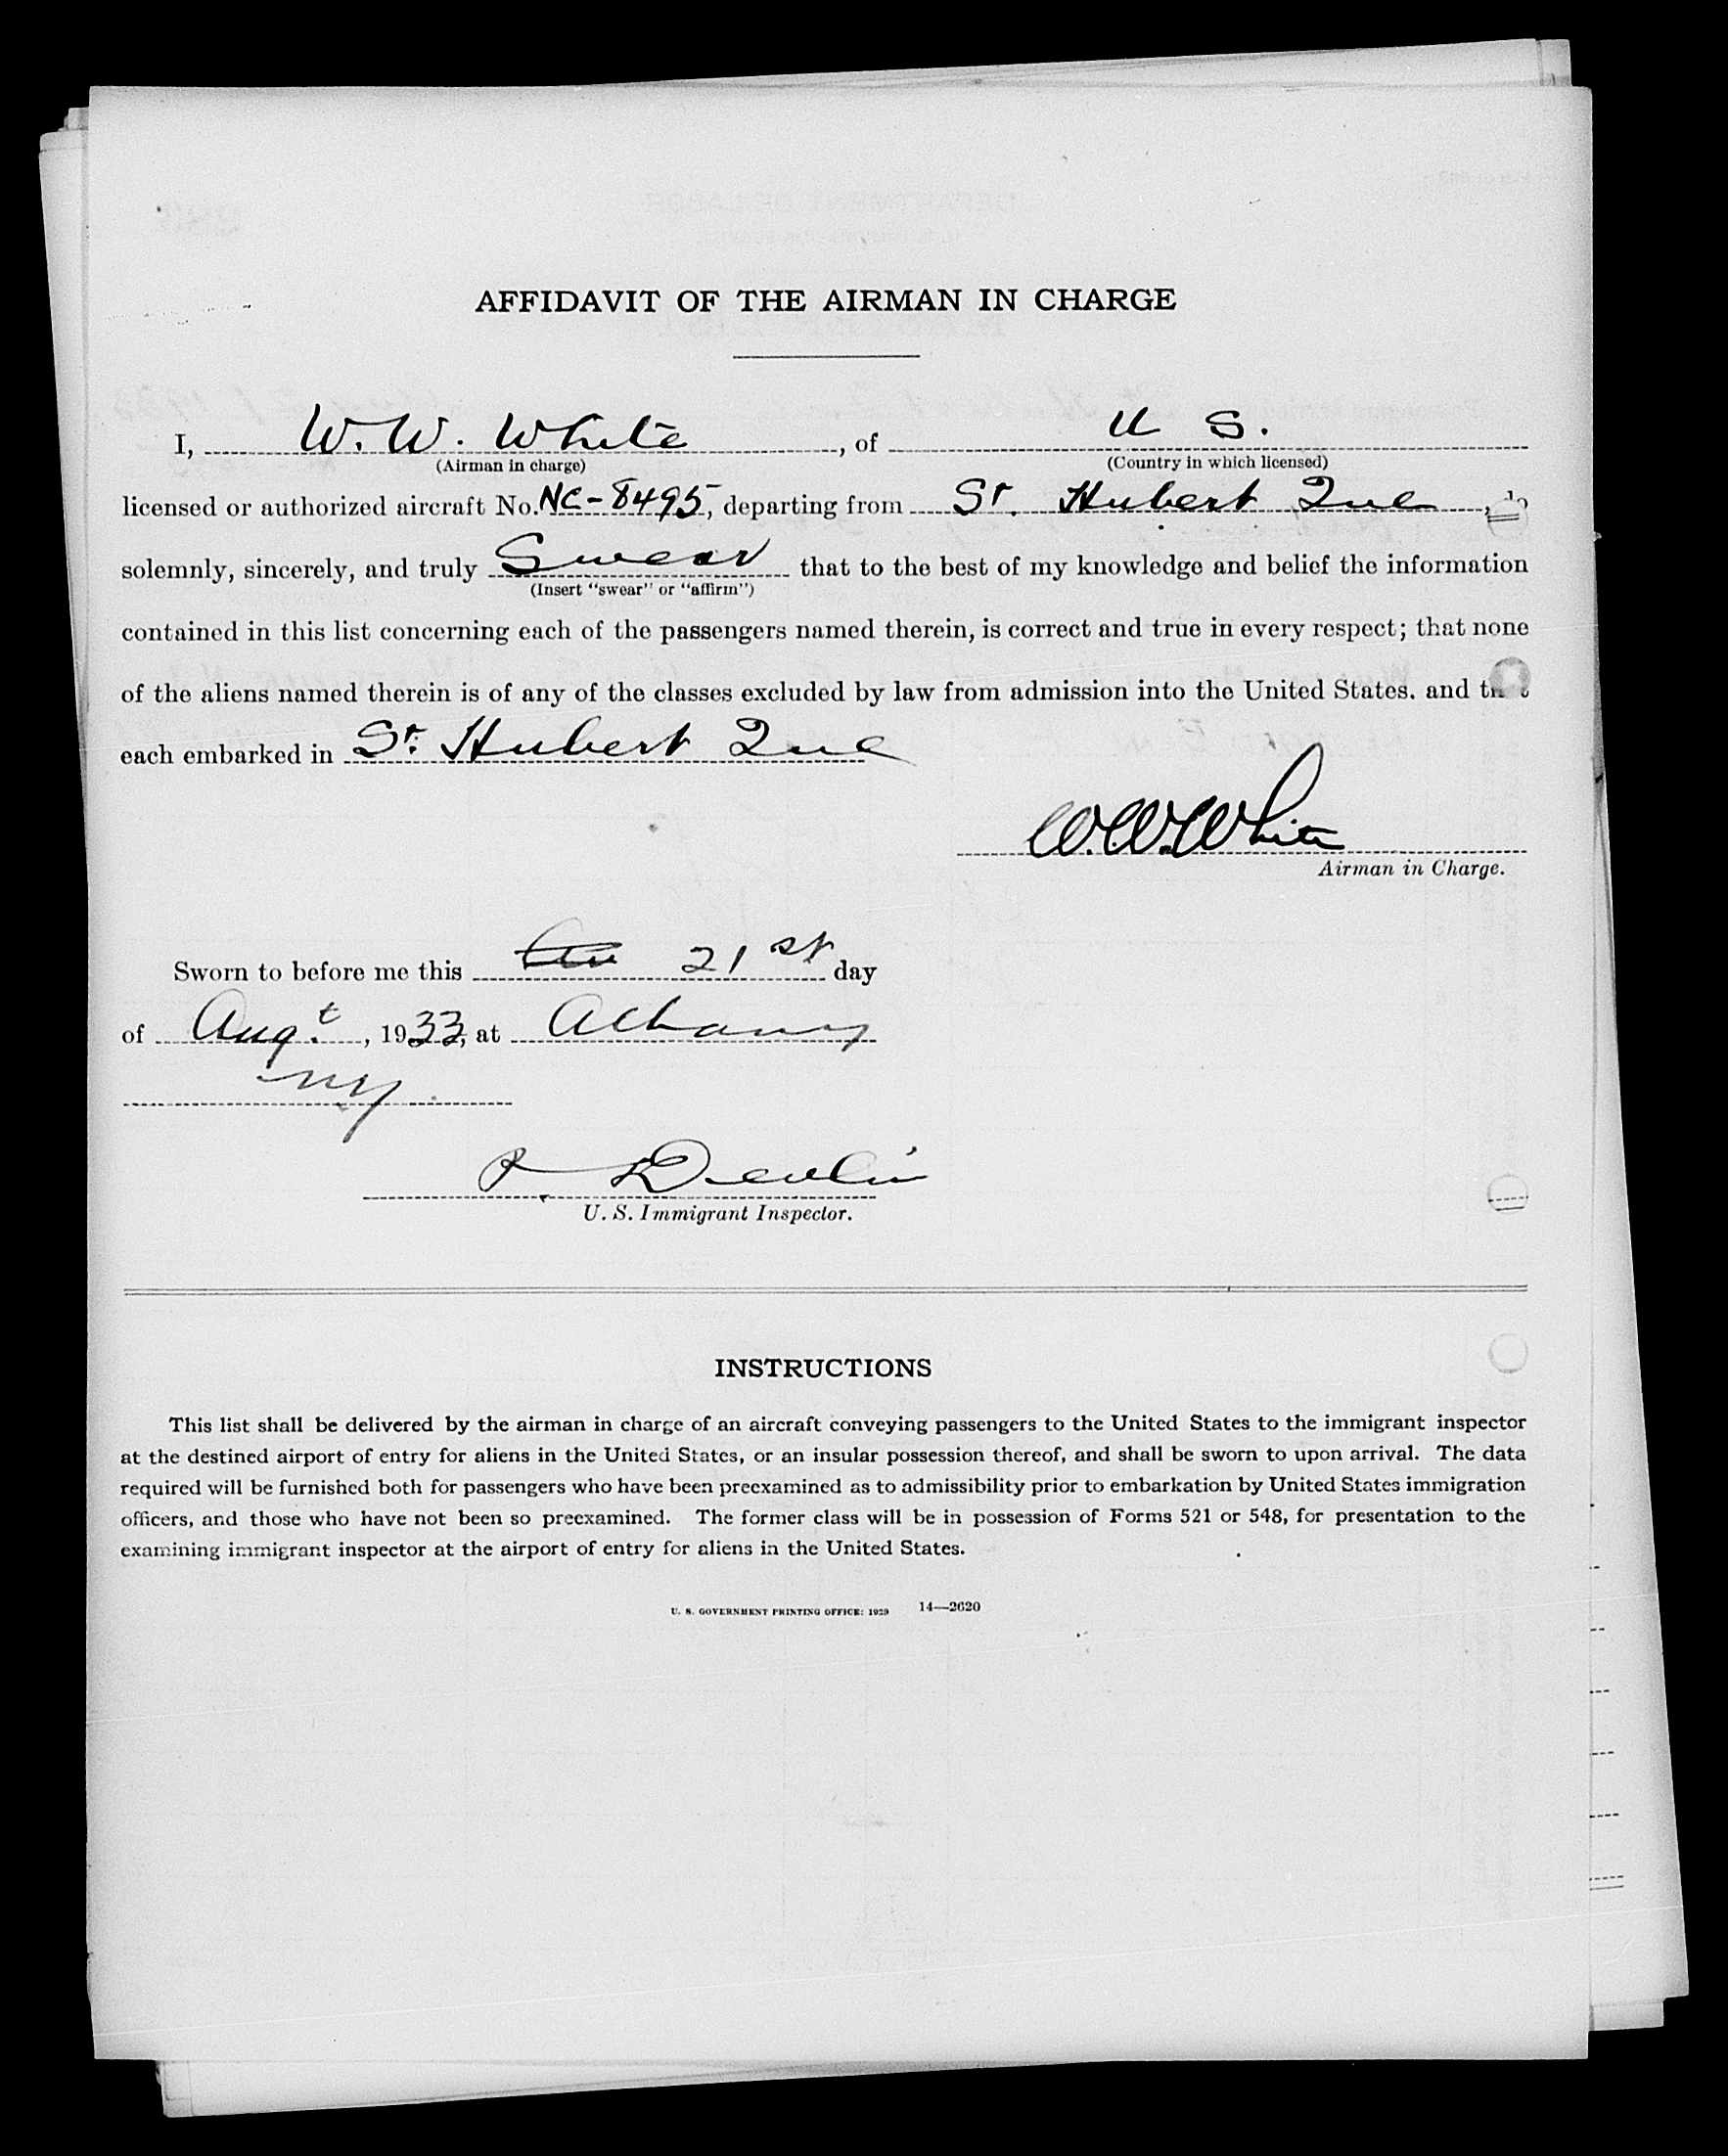 AFFIDAVIT OF THE AIRMAN IN CHARGE
I, W. W. White, of U S.
(Airman in charge) (Country in which licensed)
licensed or authorized aircraft No. NC-8495, departing from St. Hubert Que,
solemnly, sincerely, and truly Swear that to the best of my knowledge and belief the information
(Insert "swear" or "affirm")
contained in this list concerning each of the passengers named therein, is correct and true in every respect; that none
of the aliens named therein is of any of the classes excluded by law from admission into the United States. and
each embarked in St. Hubert Que
W.W.White
Airman in Charge.
Sworn to before me this 21st day
of Augt., 1933, at Albany
NY
Devlin
U. S. Immigrant Inspector.
INSTRUCTIONS
This list shall be delivered by the airman in charge of an aircraft conveying passengers to the United States to the immigrant inspector
at the destined airport of entry for aliens in the United States, or an insular possession thereof, and shall be sworn to upon arrival. The data
required will be furnished both for passengers who have been preexamined as to admissibility prior to embarkation by United States immigration
officers, and those who have not been so preexamined. The former class will be in possession of Forms 521 or 548, for presentation to the
examining immigrant inspector at the airport of entry for aliens in the United States.
U. S. GOVERNMENT PRINTING OFFICE: 1929 14—2620